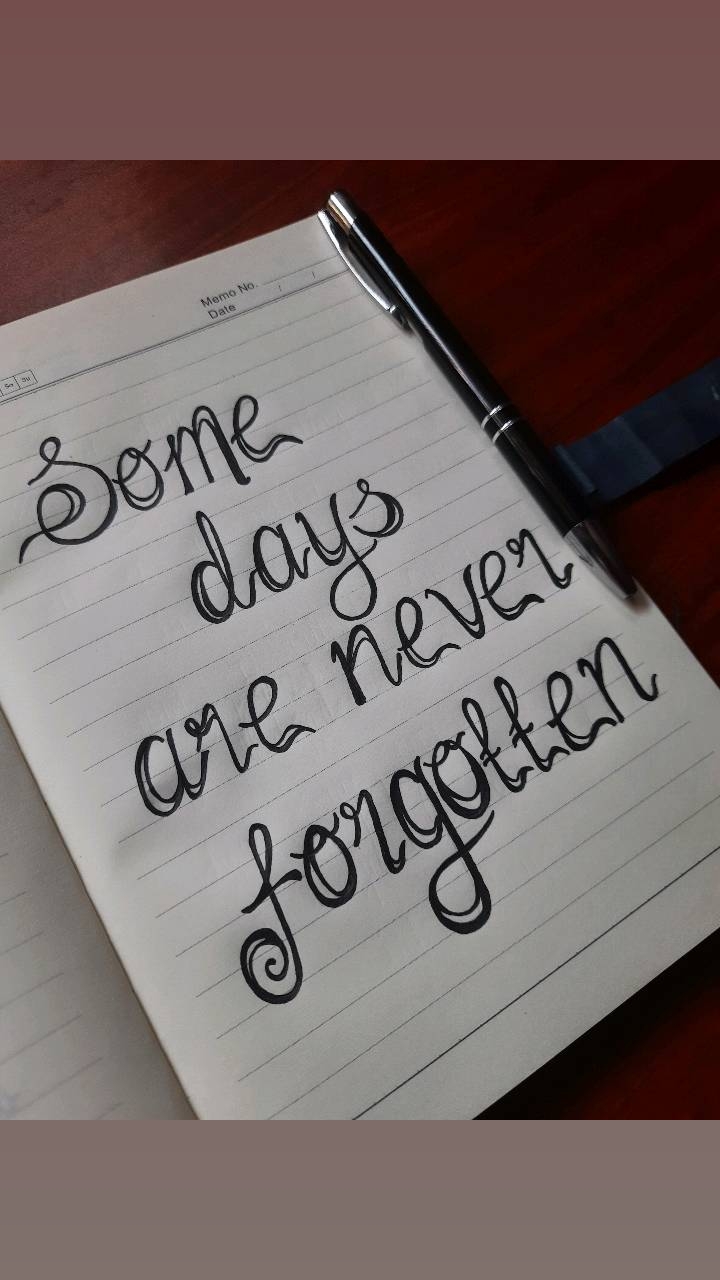 Memo No.
Date / /
Sa Su
Some
days
are never
forgotten